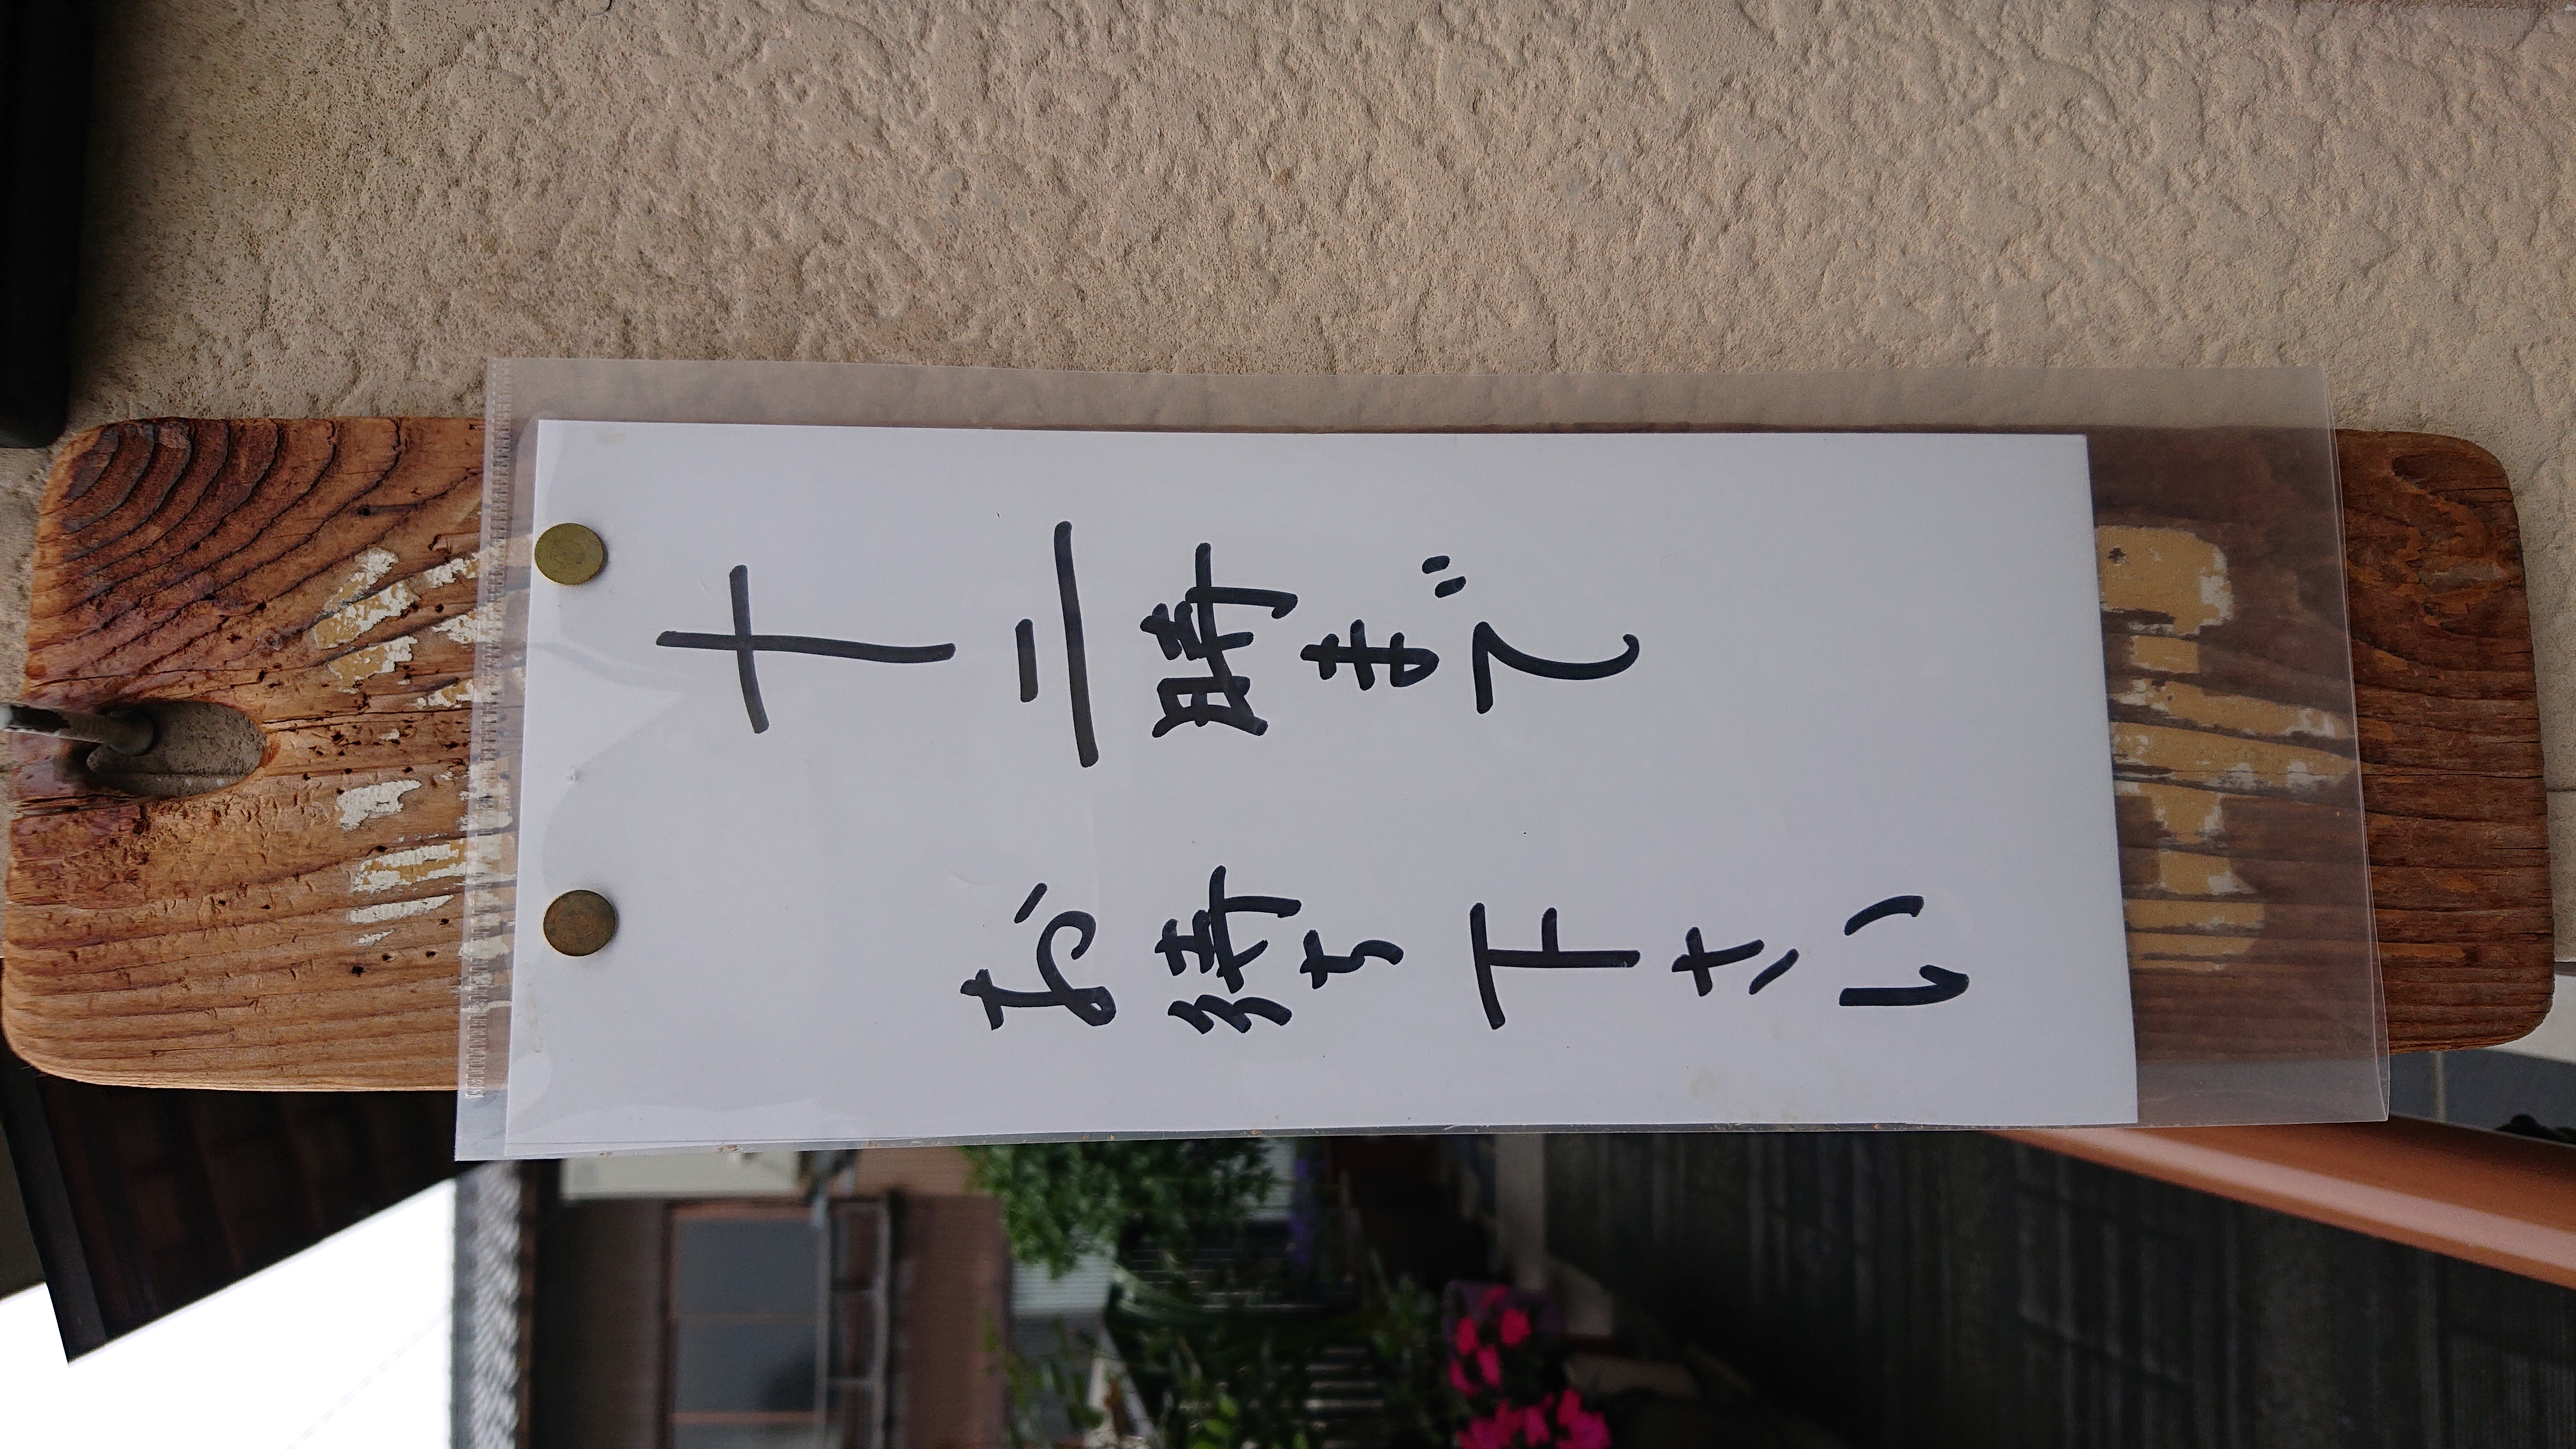 十二時まで
お待ち下さい